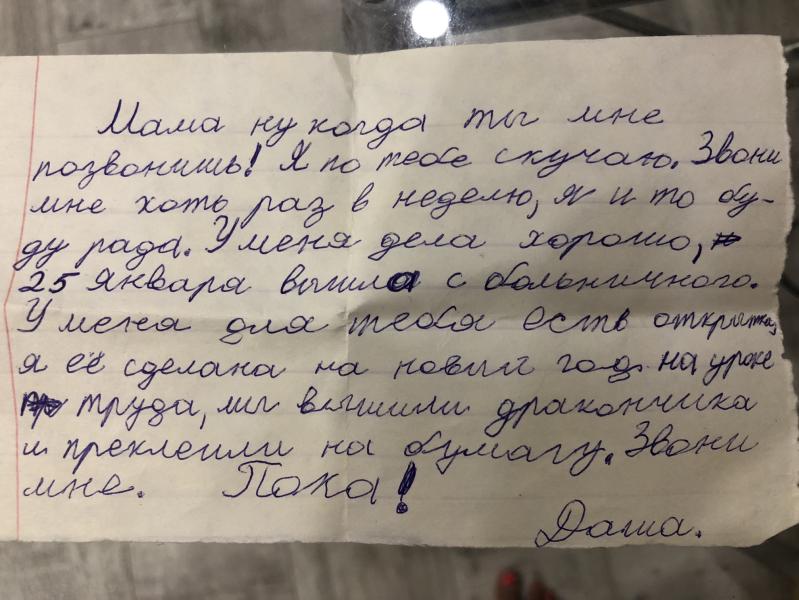 Мама ну когда ты мне
позвонишь! Я по тебе скучаю. Звони
мне хоть раз в неделю, я и то бу-
ду рада. У меня дела хорошо,
25 Января вышла с больничного.
У меня для тебя есть открытка,
я её сделала на новый год на уроке
труда, мы вышили дракончика
и преклеили на бумагу. Звони
мне. Пока!
Даша.